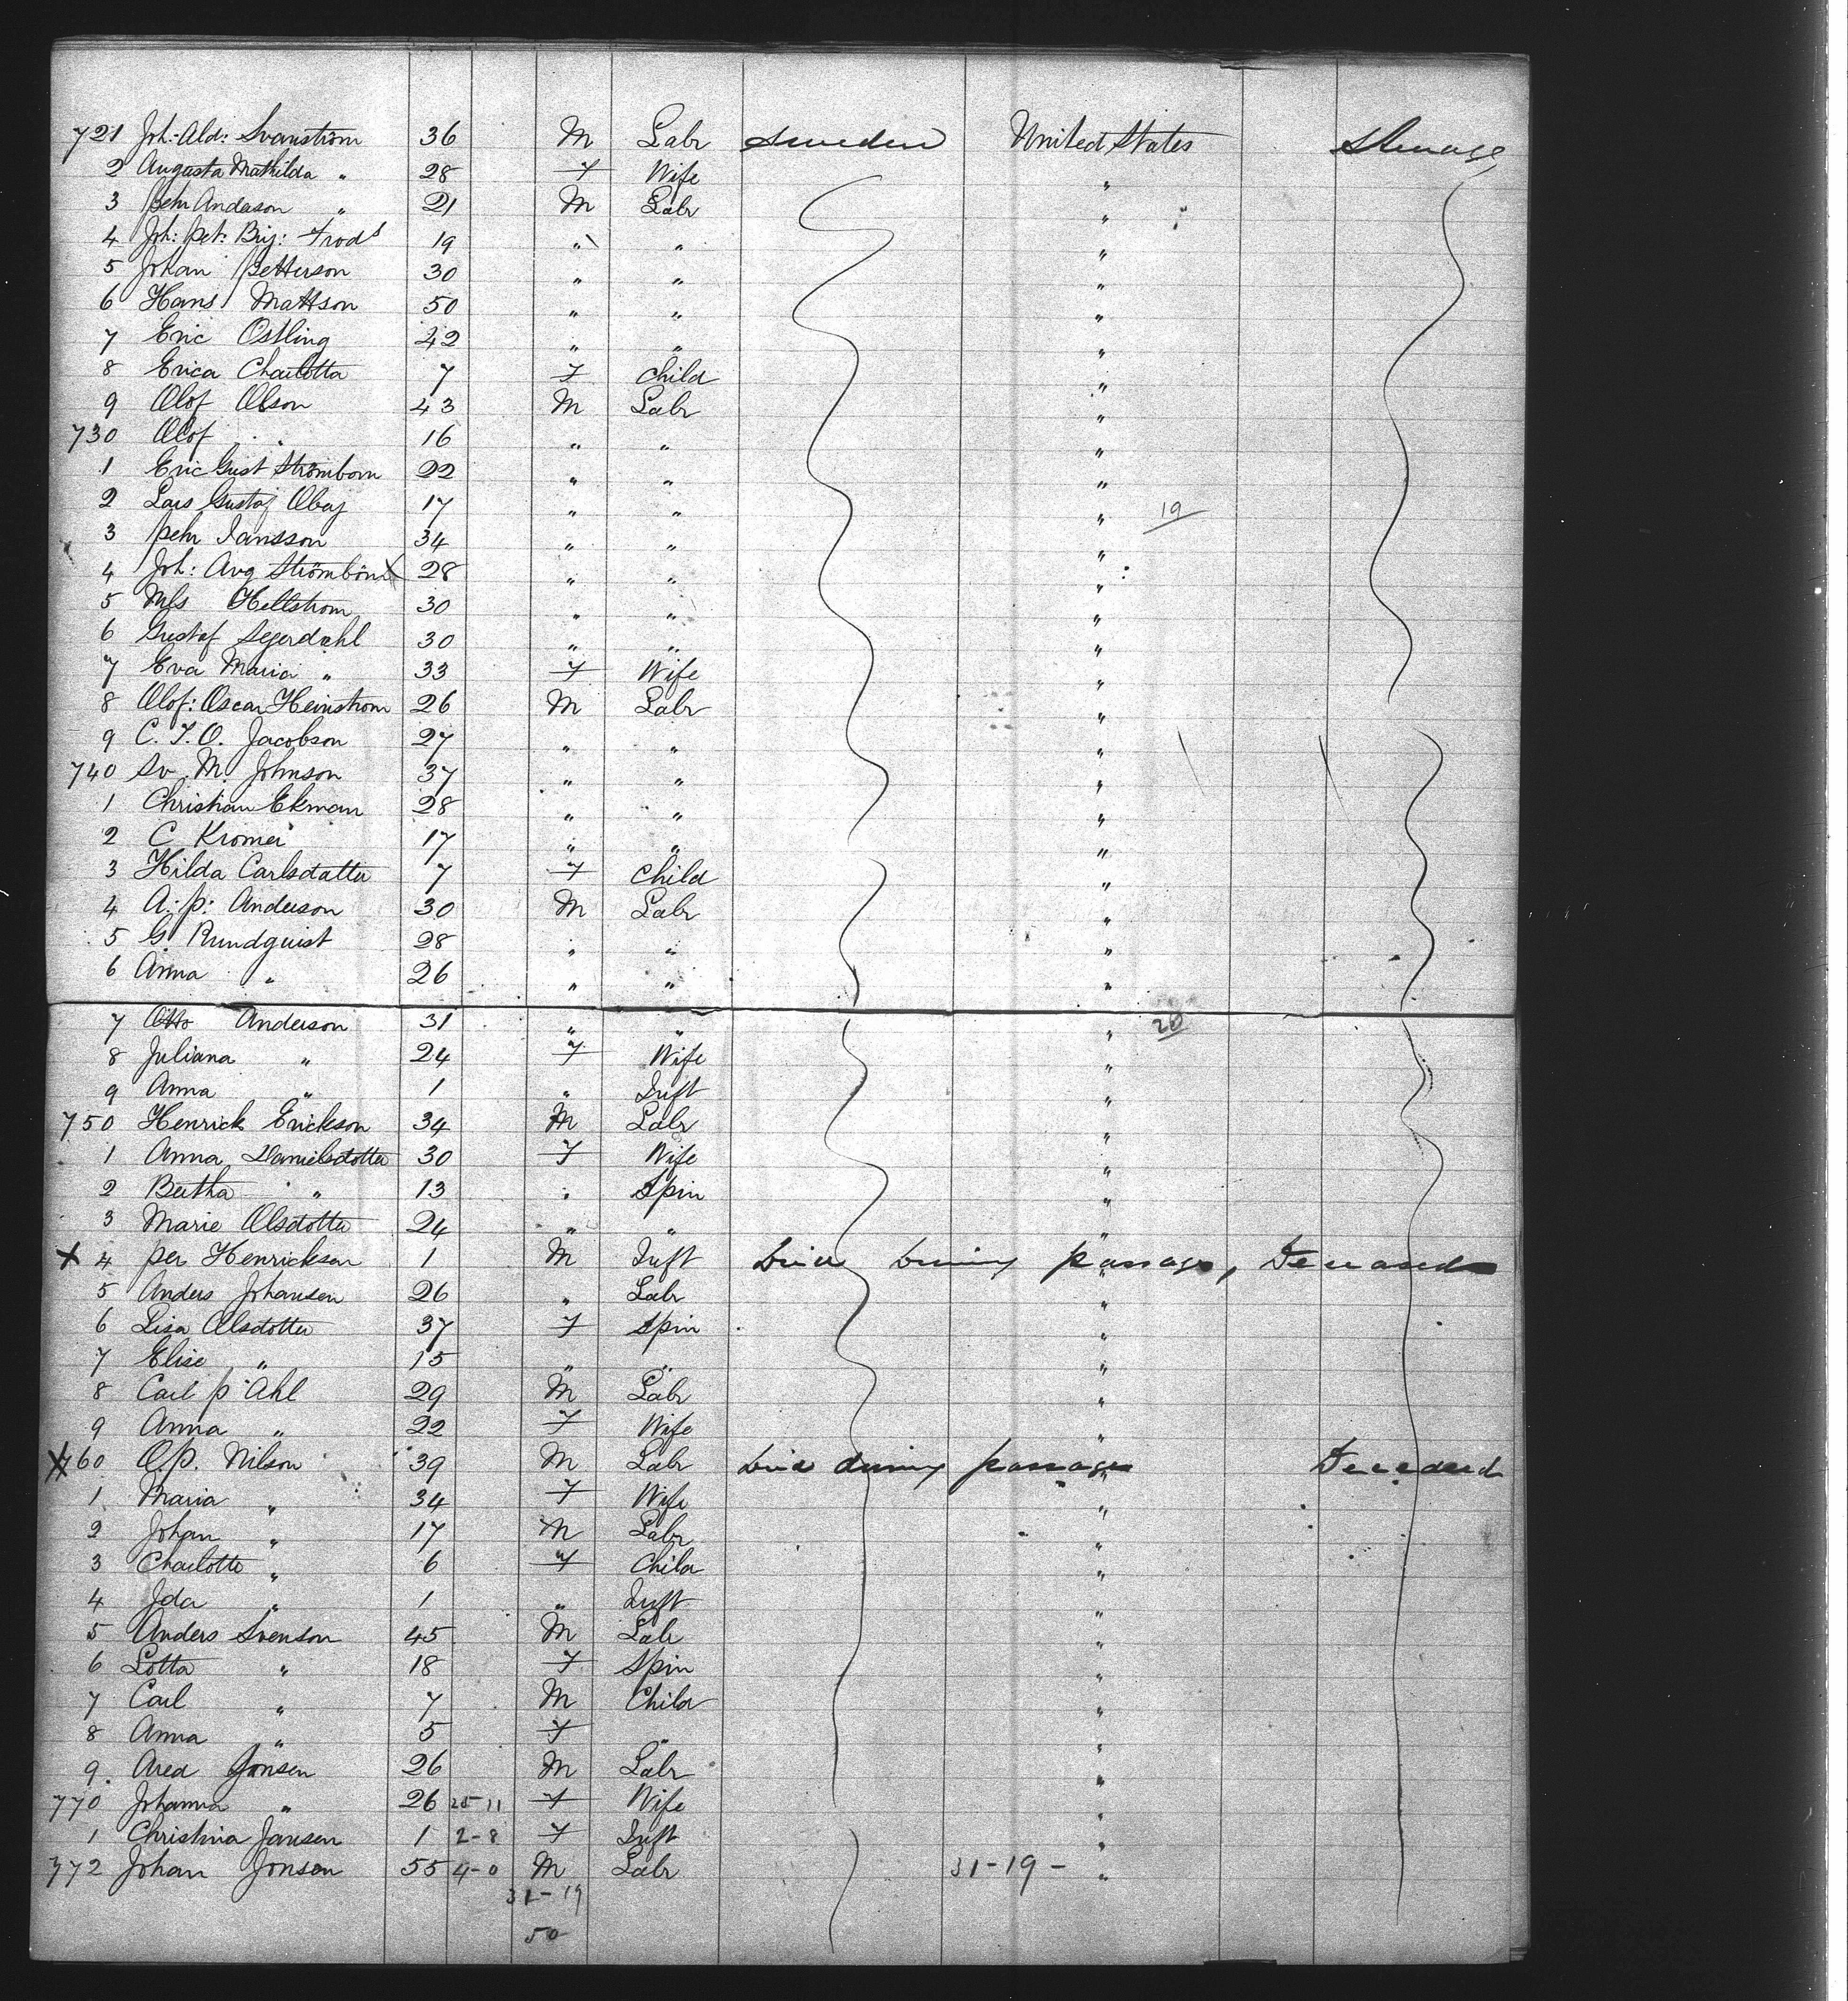 721 Joh: Ald: Svanström 36 M Labr Sweden United States Steerage
2 Augusta Mathilda " 28 F Wife "
3 Pehr Anderson " 21 M Labr "
4 Joh: Pet: 19 " " "
5 Johan Petterson 30 " " "
6 Hans Mattson 50 " " "
7 Eric Ostling 42 " " "
8 Erica Charlotta 7 F Child "
9 Olof Olson 43 M Labr "
730 Olof " 16 " " "
1 Eric Gust Strömbom 22 " " "
2 Lars Gustaf 17 " " " 19
3 Pehr Jansson 34 " " "
4 Joh: Aug Strömbom 28 " " "
5 Hellstrom 30 " " "
6 Gustaf Segerdahl 30 " " "
7 Eva Maria " 33 F Wife "
8 Olof: Oscar Heinstrom 26 M Labr "
9 C. F. O. Jacobson 27 " " "
740 Sv. M. Johnson 37 " " "
1 Christian Ekman 28 " " "
2 C Kromer 17 " " "
3 Hilda Carlsdatter 7 F Child "
4 A: P: Anderson 30 M Labr "
5 G. Rundquist 28 " " "
6 Anna " 26 " " "
7 Otto Anderson 31 " " " 20
8 Juliana " 24 F Wife "
9 Anna " 1 " Inft "
750 Henrick Erickson 34 M Labr "
1 Anna Danielsdotter 30 F Wife "
2 Bertha " 13 " Spin "
3 Marie Olsdotter 24 " " "
X 4 Per Henrickson 1 M Inft Died During passage, Deceased
5 Anders Johansen 26 " Labr "
6 Lisa Olsdotter 37 F Spin "
7 Elise " 15 " " "
8 Carl P Ahl 29 M Labr "
9 Anna " 22 F Wife "
X 760 O.P. Nilson 39 M Labr Died during passage " Deceased
1 Maria " 34 F Wife "
2 Johan " 17 M Labr "
3 Charlotte " 6 F Child "
4 Ida " 1 " Inft "
5 Anders Svenson 45 M Labr "
6 Lotta " 18 F Spin "
7 Carl " 7 M Child "
8 Anna " 5 F " "
9. Jonsen 26 M Labr "
770 Johanna " 26 25-11 F Wife "
1 Christina Jansen 1 2-8 F Inft "
772 Johan Jonson 55 4-0 M Labr 31-19- "
31-19
50